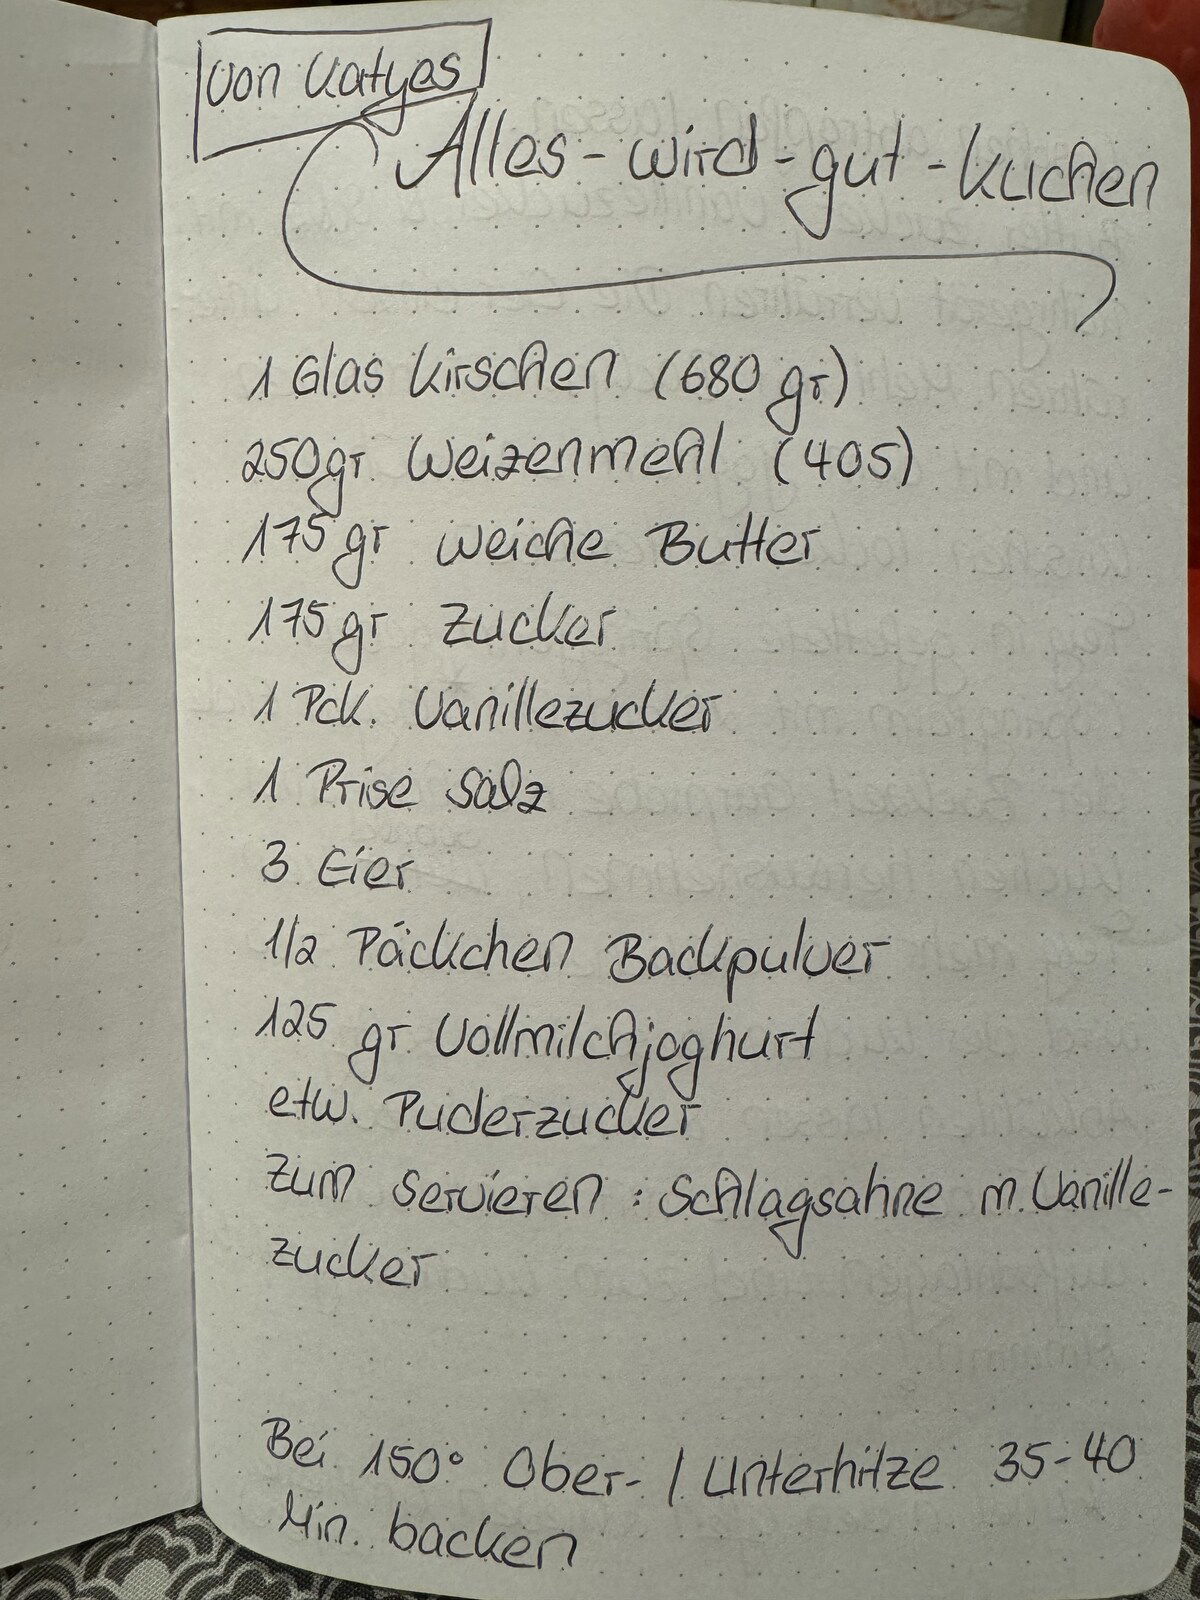 von Katyes
Alles-wird-gut-Kuchen
1 Glas Kirschen (680 gr)
250gr Weizenmehl (405)
175gr weiche Butter
175gr Zucker
1 Pck. Vanillezucker
1 Prise Salz
3 Eier
1/2 Päckchen Backpulver
125 gr Vollmilchjoghurt
etw. Puderzucker
zum Servieren: Schlagsahne m. Vanille-
zucker
Bei 150° Ober-/Unterhitze 35-40
Min. backen